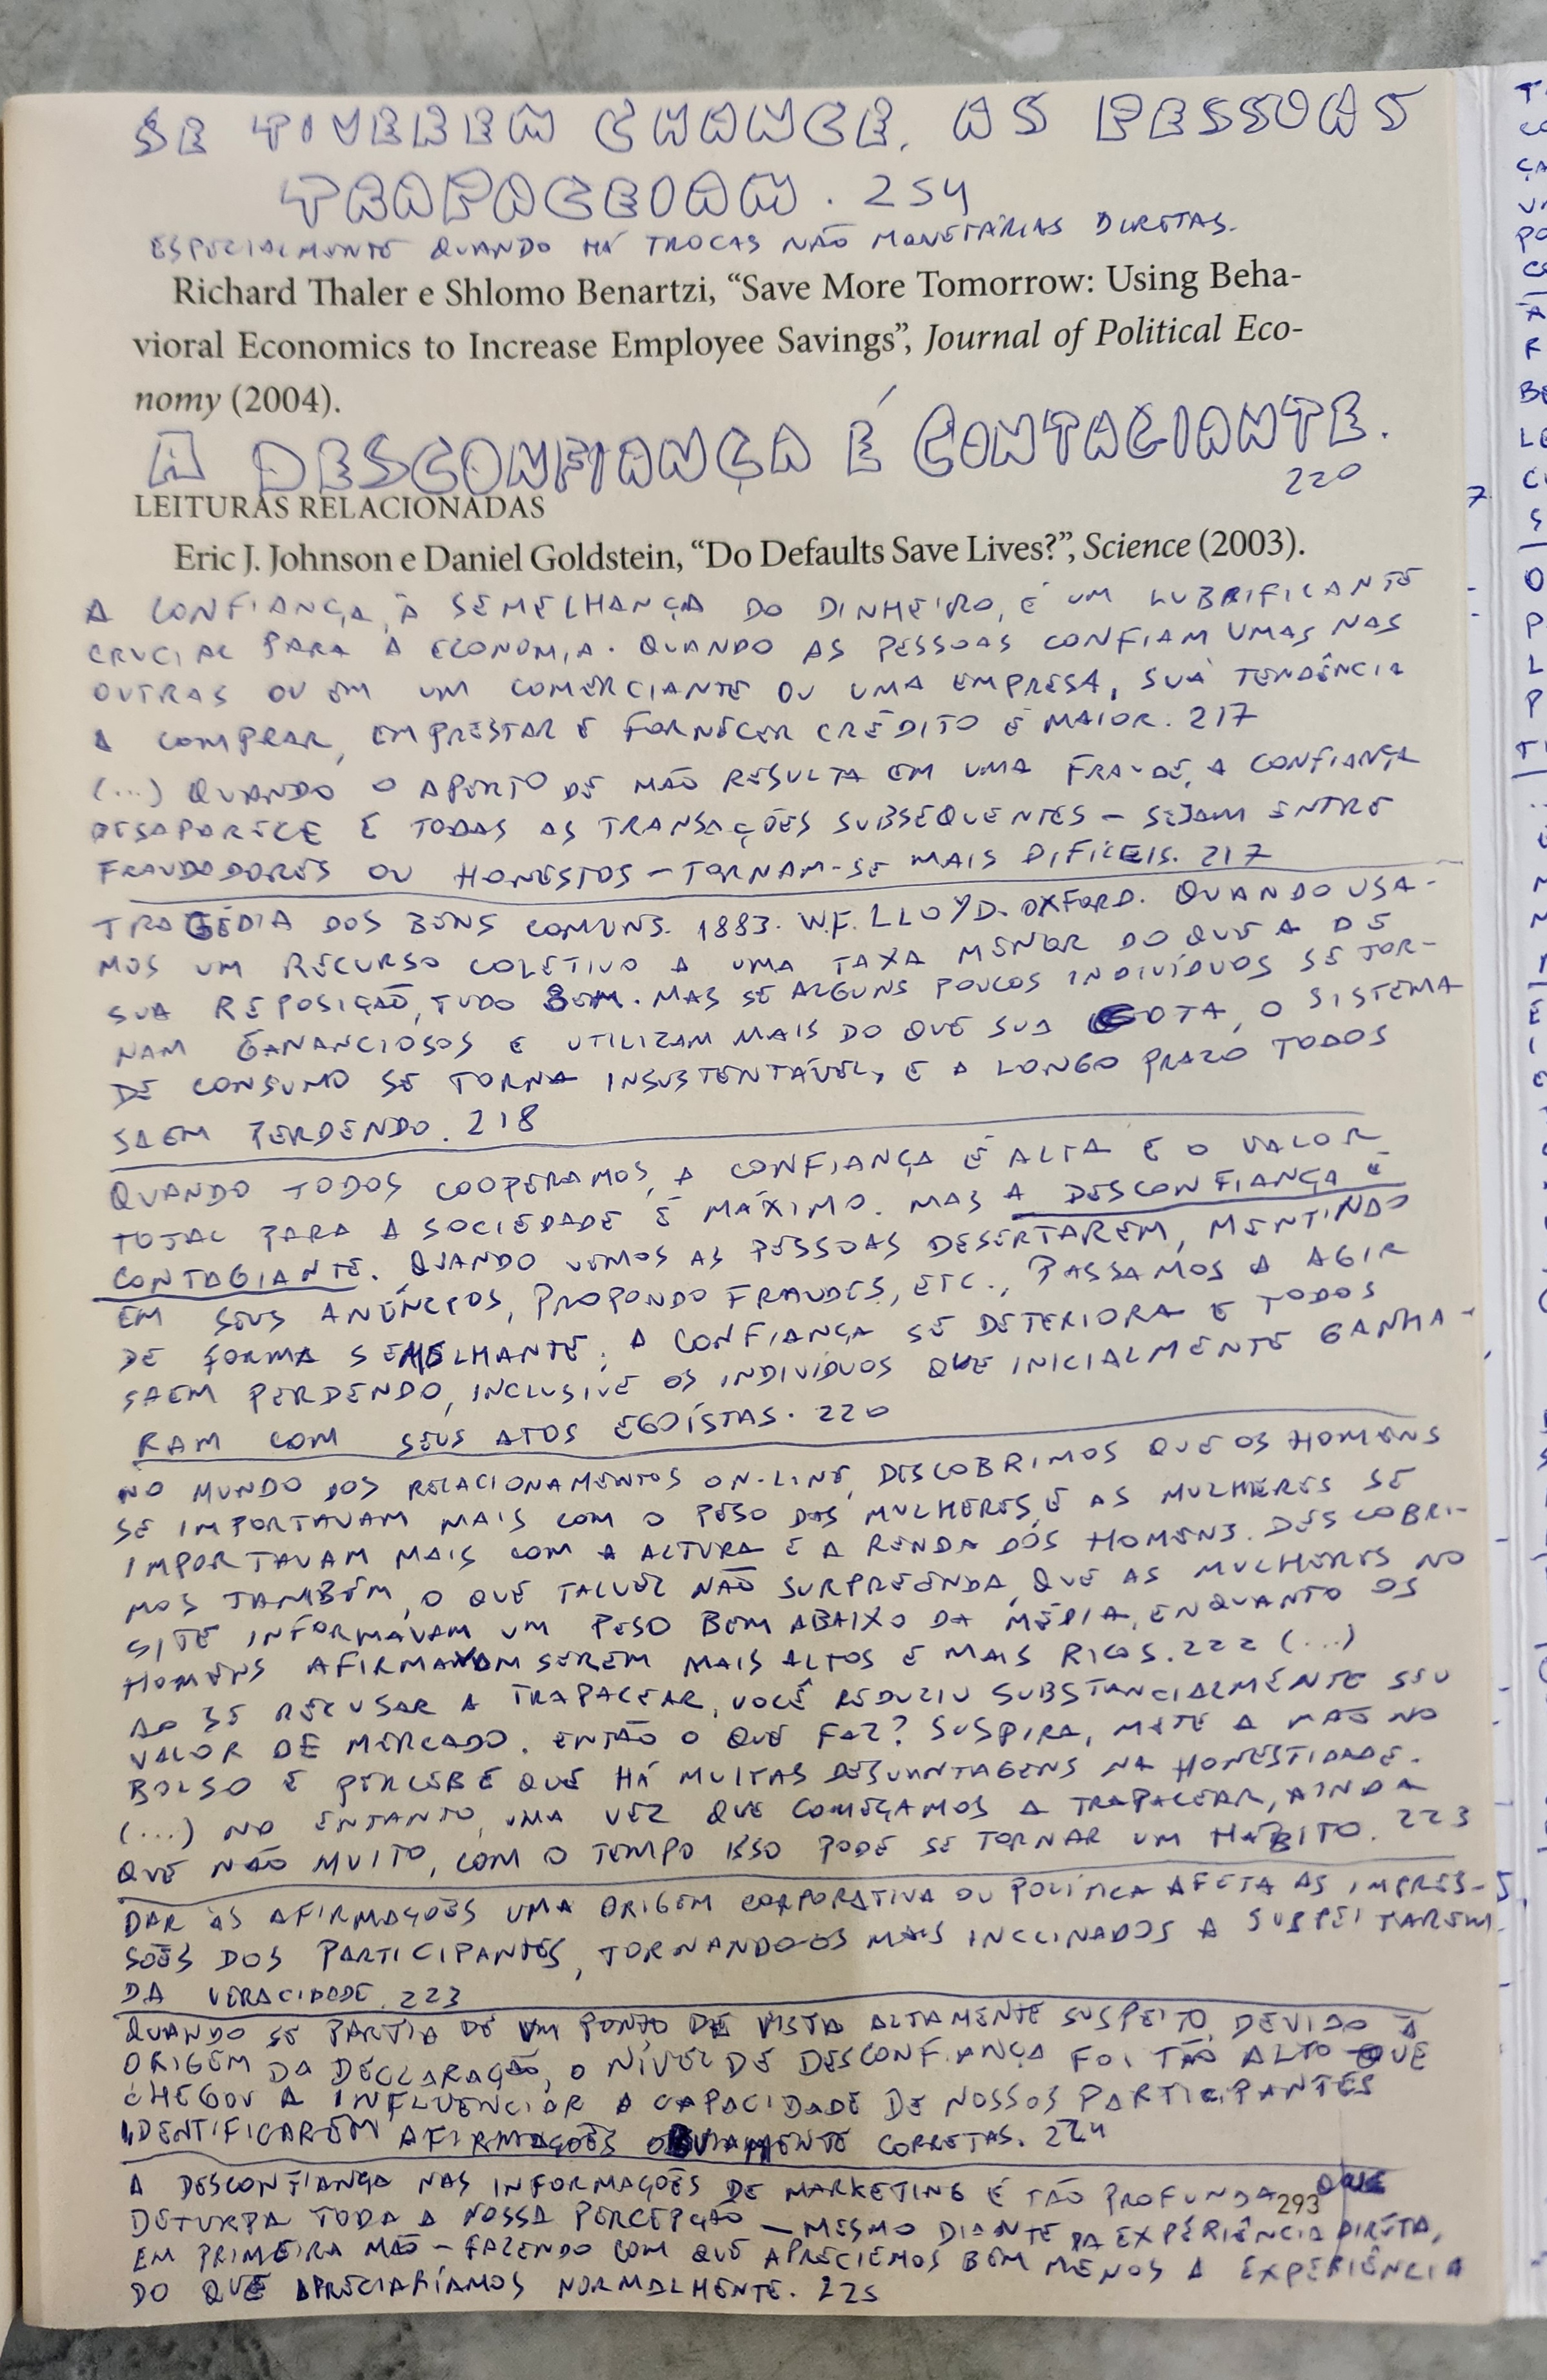 SE TIVEREM CHANCE, AS PESSOAS
TRAPACEIAM. 254
ESPECIALMENTE QUANDO HÁ TROCAS NÃO MONETÁRIAS DIRETAS.
Richard Thaler e Shlomo Benartzi, “Save More Tomorrow: Using Beha-
vioral Economics to Increase Employee Savings”, Journal of Political Eco-
nomy (2004).
A DESCONFIANÇA É CONTAGIANTE.
220
LEITURAS RELACIONADAS
Eric J. Johnson e Daniel Goldstein, “Do Defaults Save Lives?”, Science (2003).
A CONFIANÇA, À SEMELHANÇA DO DINHEIRO, É UM LUBRIFICANTE
CRUCIAL PARA A ECONOMIA. QUANDO AS PESSOAS CONFIAM UMAS NAS
OUTRAS OU EM UM COMERCIANTE OU UMA EMPRESA, SUA TENDÊNCIA
A COMPRAR, EMPRESTAR E FORNECER CRÉDITO É MAIOR. 217
(...) QUANDO O APERTO DE MÃO RESULTA EM UMA FRAUDE, A CONFIANÇA
DESAPARECE E TODAS AS TRANSAÇÕES SUBSEQUENTES – SEJAM ENTRE
FRAUDADORES OU HONESTOS – TORNAM-SE MAIS DIFÍCEIS. 217
TRAGÉDIA DOS BENS COMUNS. 1883. W.F. LLOYD. OXFORD. QUANDO USA-
MOS UM RECURSO COLETIVO A UMA TAXA MENOR DO QUE A DE
SUA REPOSIÇÃO, TUDO BEM. MAS SE ALGUNS POUCOS INDIVÍDUOS SE TOR-
NAM GANANCIOSOS E UTILIZAM MAIS DO QUE SUA COTA, O SISTEMA
DE CONSUMO SE TORNA INSUSTENTÁVEL, E A LONGO PRAZO TODOS
SAEM PERDENDO. 218
QUANDO TODOS COOPERAMOS, A CONFIANÇA É ALTA E O VALOR
TOTAL PARA A SOCIEDADE É MÁXIMO. MAS A DESCONFIANÇA É
CONTAGIANTE. QUANDO VEMOS AS PESSOAS DESERTAREM, MENTINDO
EM SEUS ANÚNCIOS, PROPONDO FRAUDES, ETC., PASSAMOS A AGIR
DE FORMA SEMELHANTE; A CONFIANÇA SE DETERIORA E TODOS
SAEM PERDENDO, INCLUSIVE OS INDIVÍDUOS QUE INICIALMENTE GANHA-
RAM COM SEUS ATOS EGOÍSTAS. 220
NO MUNDO DOS RELACIONAMENTOS ON-LINE, DESCOBRIMOS QUE OS HOMENS
SE IMPORTAVAM MAIS COM O PESO DAS MULHERES, E AS MULHERES SE
IMPORTAVAM MAIS COM A ALTURA E A RENDA DOS HOMENS. DESCOBRI-
MOS TAMBÉM, O QUE TALVEZ NÃO SURPREENDA, QUE AS MULHERES NO
SITE INFORMAVAM UM PESO BEM ABAIXO DA MÉDIA, ENQUANTO OS
HOMENS AFIRMAVAM SEREM MAIS ALTOS E MAIS RICOS. 222 (...)
AO SE RECUSAR A TRAPACEAR, VOCÊ REDUZIU SUBSTANCIALMENTE SEU
VALOR DE MERCADO. ENTÃO O QUE FAZ? SUSPIRA, METE A MÃO NO
BOLSO E PERCEBE QUE HÁ MUITAS DESVANTAGENS NA HONESTIDADE.
(...) NO ENTANTO, UMA VEZ QUE COMEÇAMOS A TRAPACEAR, AINDA
QUE NÃO MUITO, COM O TEMPO ISSO PODE SE TORNAR UM HÁBITO. 223
DAR ÀS AFIRMAÇÕES UMA ORIGEM CORPORATIVA OU POLÍTICA AFETA AS IMPRES-
SÕES DOS PARTICIPANTES, TORNANDO-OS MAIS INCLINADOS A SUSPEITAREM
DA VERACIDADE. 223
QUANDO SE PARTIA DE UM PONTO DE VISTA ALTAMENTE SUSPEITO, DEVIDO À
ORIGEM DA DECLARAÇÃO, O NÍVEL DE DESCONFIANÇA FOI TÃO ALTO QUE
CHEGOU A INFLUENCIAR A CAPACIDADE DE NOSSOS PARTICIPANTES
IDENTIFICAREM AFIRMAÇÕES OBVIAMENTE CORRETAS. 224
A DESCONFIANÇA NAS INFORMAÇÕES DE MARKETING É TÃO PROFUNDA QUE
293
DETURPA TODA A NOSSA PERCEPÇÃO – MESMO DIANTE DA EXPERIÊNCIA DIRETA,
EM PRIMEIRA MÃO – FAZENDO COM QUE APRECIEMOS BEM MENOS A EXPERIÊNCIA
DO QUE APRECIARÍAMOS NORMALMENTE. 225